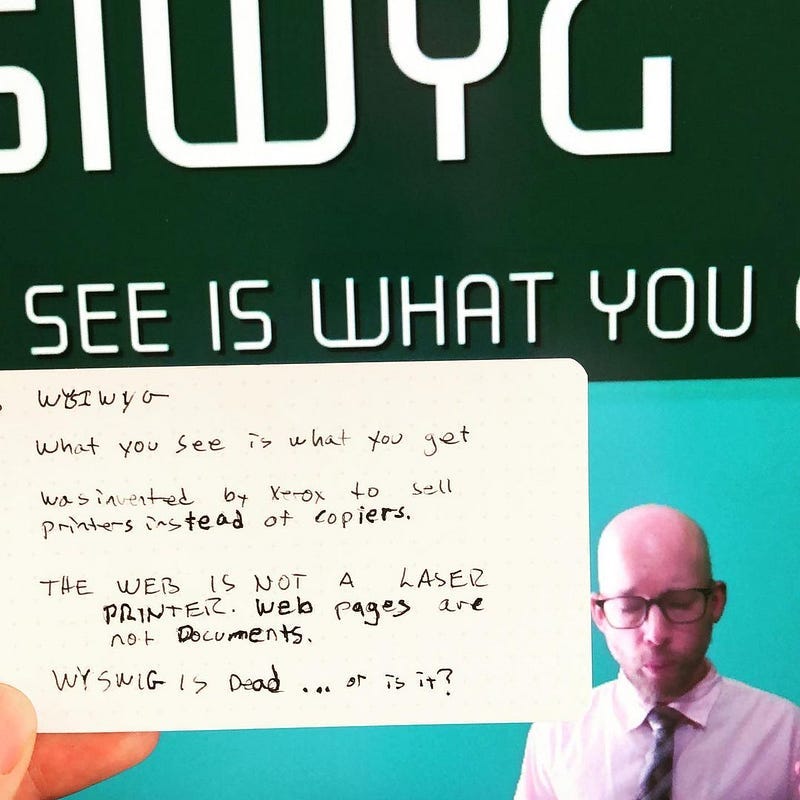 SIWYG
SEE IS WHAT YOU
WYSIWYG
What you see is what you get
was invented by Xerox to sell
printers instead of copiers.
THE WEB IS NOT A LASER
PRINTER. Web pages are
not Documents.
WYSWIG IS Dead ... or is it?